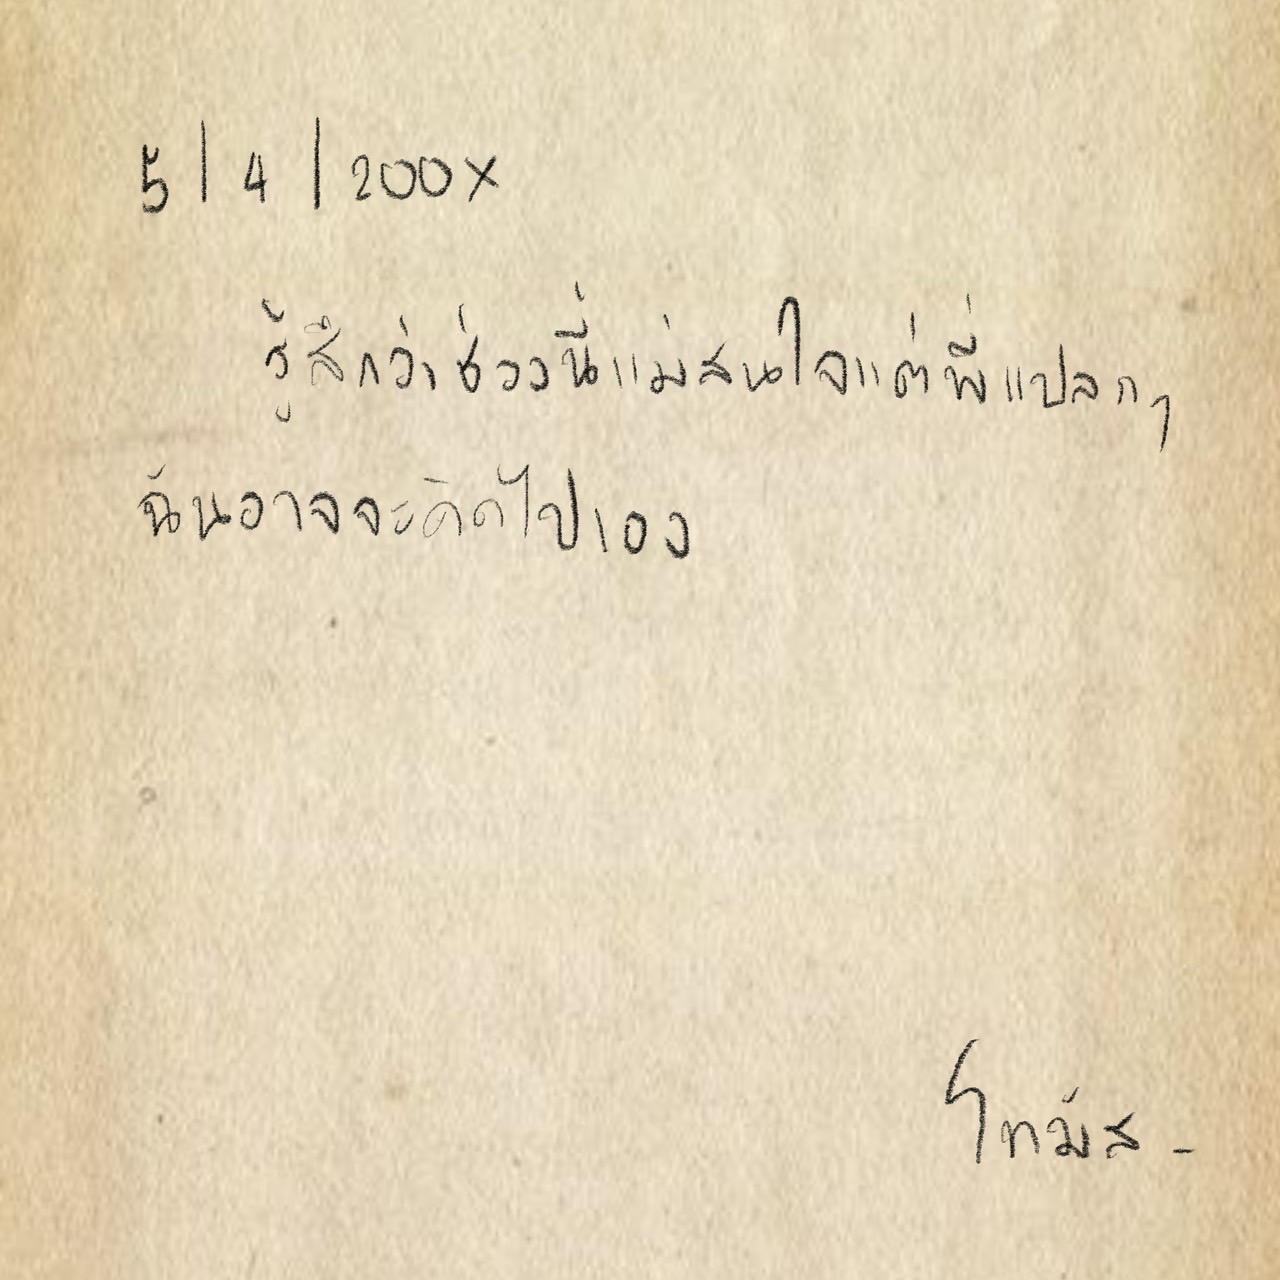 5/4/200X
รู้สึกว่าช่วงนี้แม่สนใจแต่พี่แปลกๆ
ฉันอาจจะคิดไปเอง
โทมัส -